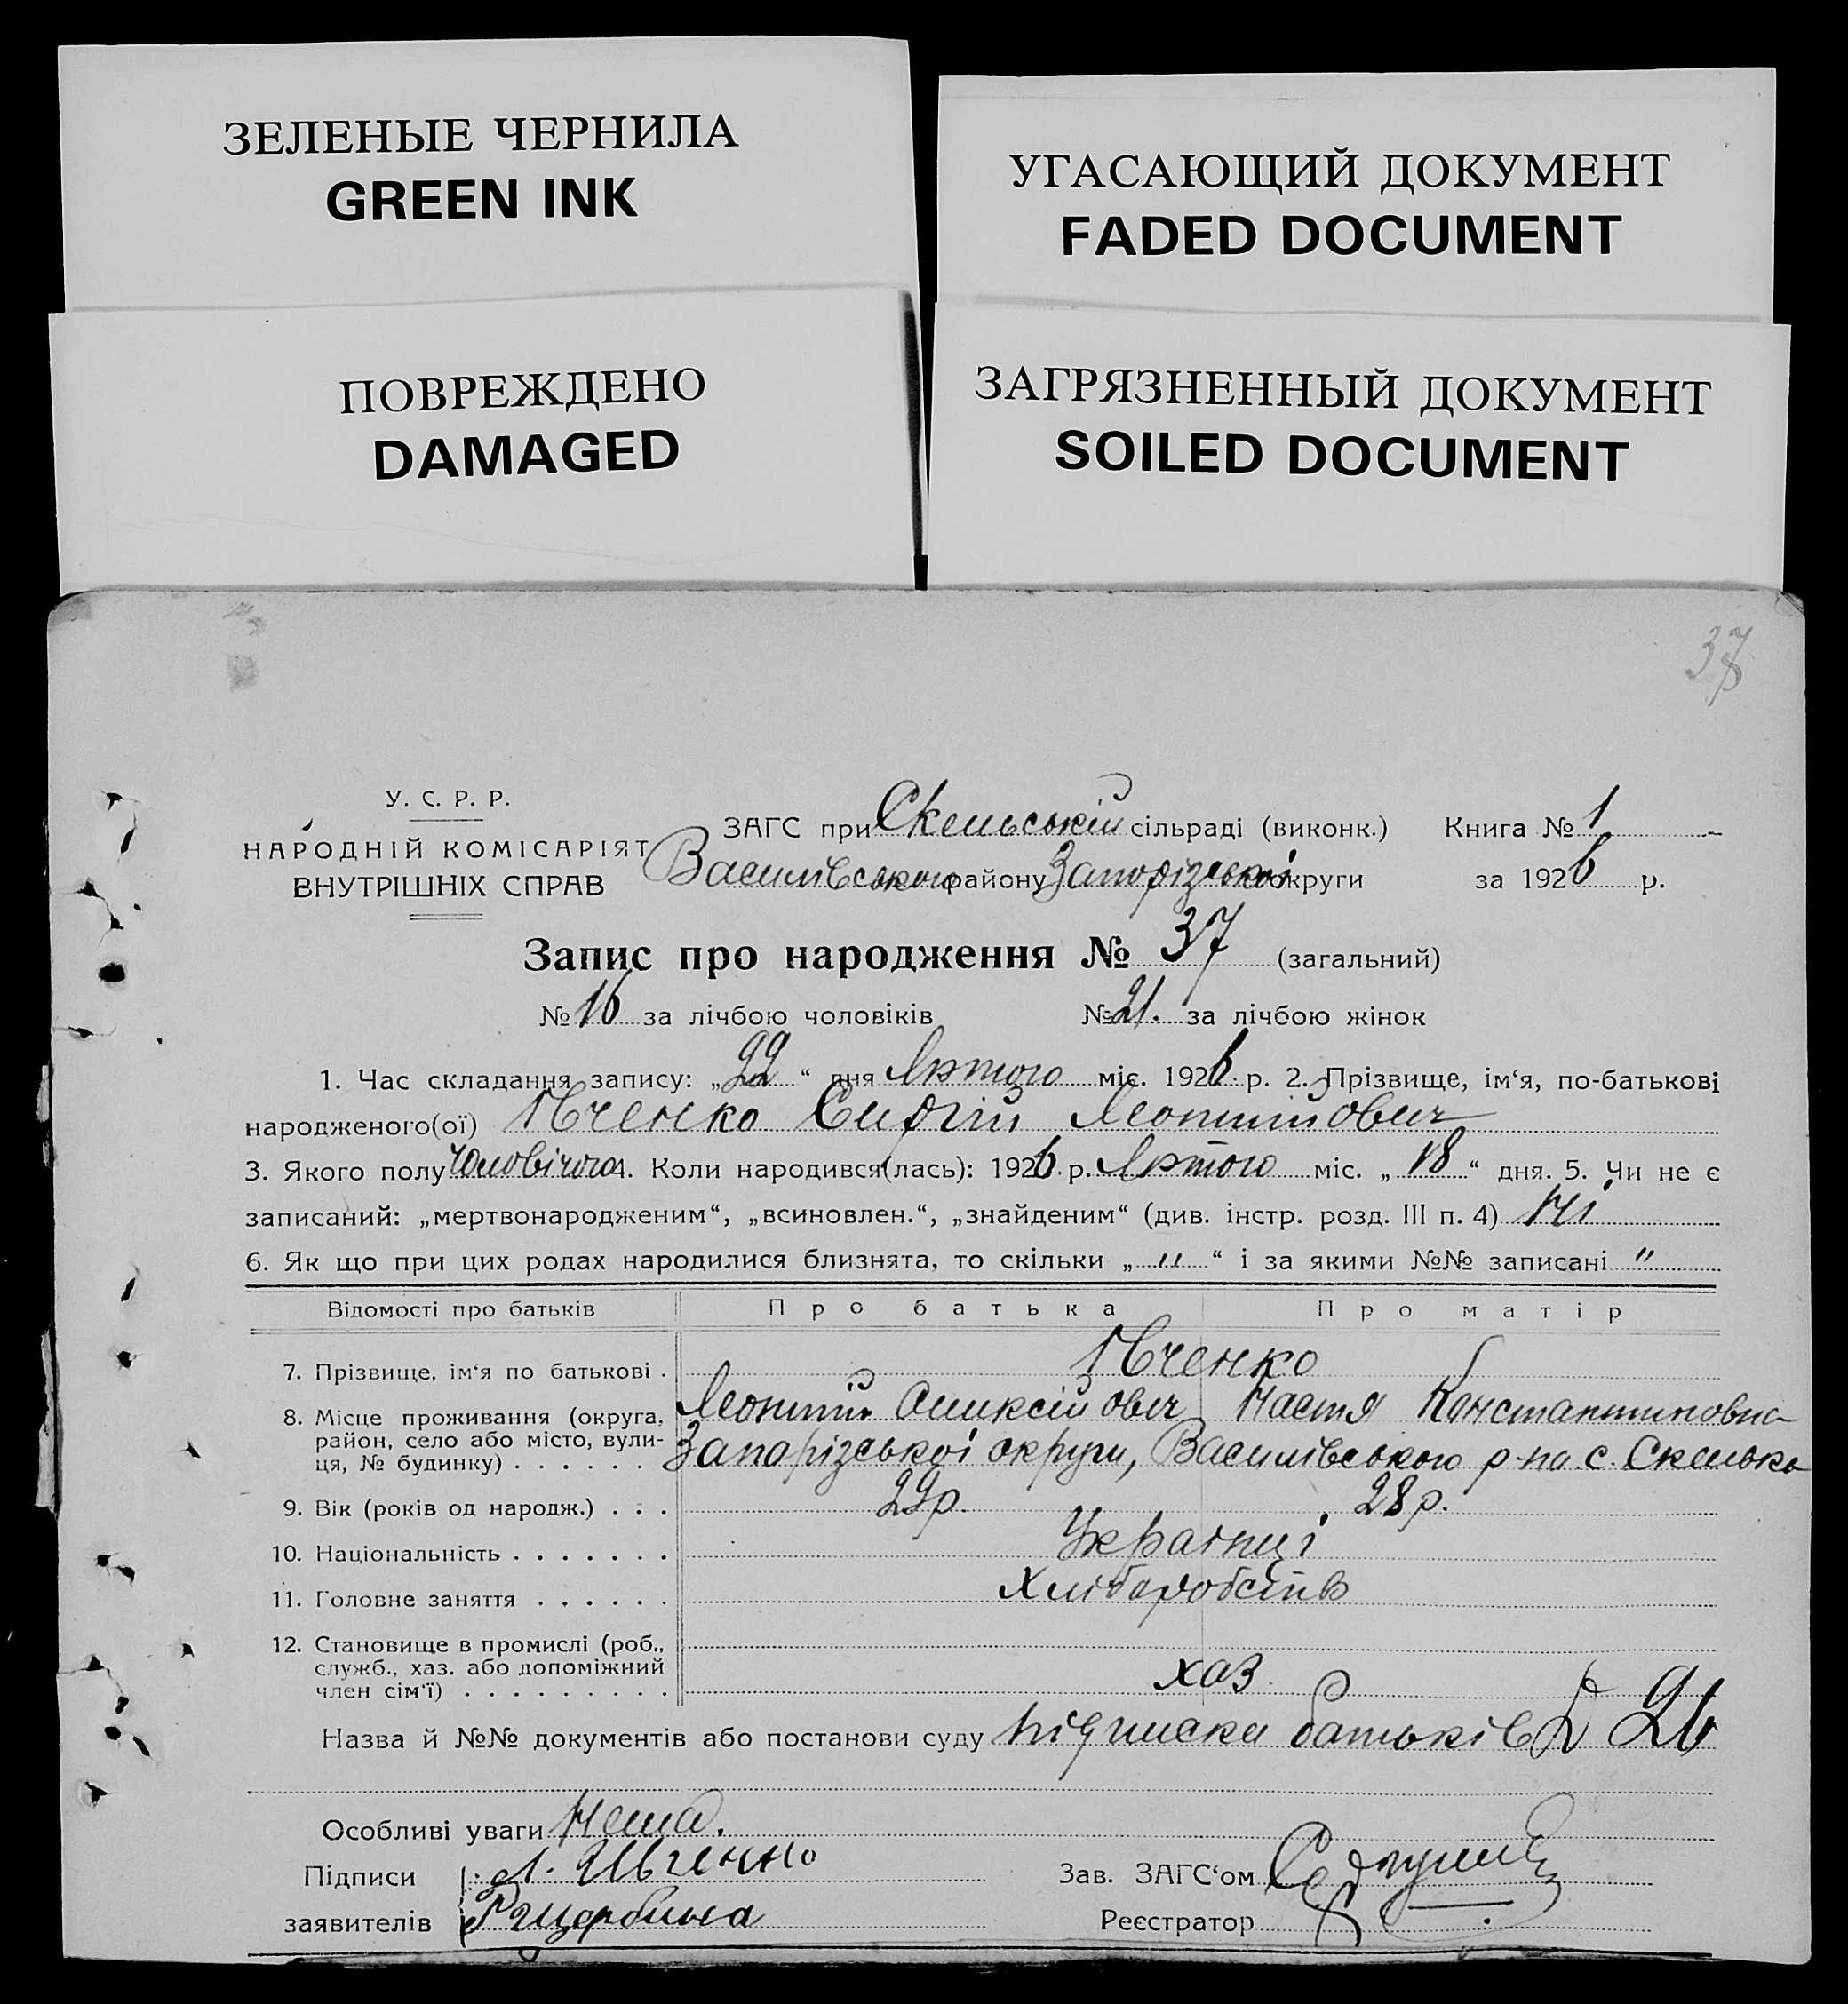 ЗЕЛЕНЫЕ ЧЕРНИЛА
GREEN INK
УГАСАЮЩИЙ ДОКУМЕНТ
FADED DOCUMENT
ПОВРЕЖДЕНО
DAMAGED
ЗАГРЯЗНЕННЫЙ ДОКУМЕНТ
SOILED DOCUMENT
37
У. С. Р. Р.
НАРОДНІЙ КОМІСАРІЯТ
ВНУТРІШНІХ СПРАВ
ЗАГС при Скельській сільраді (виконк.) Книга № 1
Василівського району Запорізської округи за 1926 р.
Запис про народження № 37 (загальний)
№ 16 за лічбою чоловіків № 21. за лічбою жінок
1. Час складання запису: „22“ дня Лютого міс. 1926 р. 2. Прізвище, ім‘я, по-батькові
народженого(ої) Ивченко Сиргій Леонтійович
3. Якого полу Чоловічого 4. Коли народився(лась): 1926 р. Лютого міс. „18“ дня. 5. Чи не є
записаний: „мертвонародженим“, „всиновлен.“, „знайденим“ (див. інстр. розд. III п. 4) Ні
6. Як що при цих родах народилися близнята, то скільки „ " “ і за якими №№ записані "
Відомості про батьків Про батька Про матір
7. Прізвище, ім‘я по батькові . Ивченко
Леонтій Оликсійович Настя Константиновна
8. Місце проживання (округа, район, село або місто, вули-
ця, № будинку) . . . . . . Запорізської округи, Василівського р-на с. Скелька
9. Вік (років од народж.) . . . 29 р. 28 р.
10. Національність . . . . . . . Українці
11. Головне заняття . . . . . . Хліборобств
12. Становище в промислі (роб.,
служб., хаз. або допоміжний
член сім‘ї) . . . . . . . . . хаз.
Назва й №№ документів або постанови суду підписка батьків 26
Особливі уваги Нема.
Підписи Л. Ивченко
заявителів Р Щербина
Зав. ЗАГС‘ом
Реєстратор